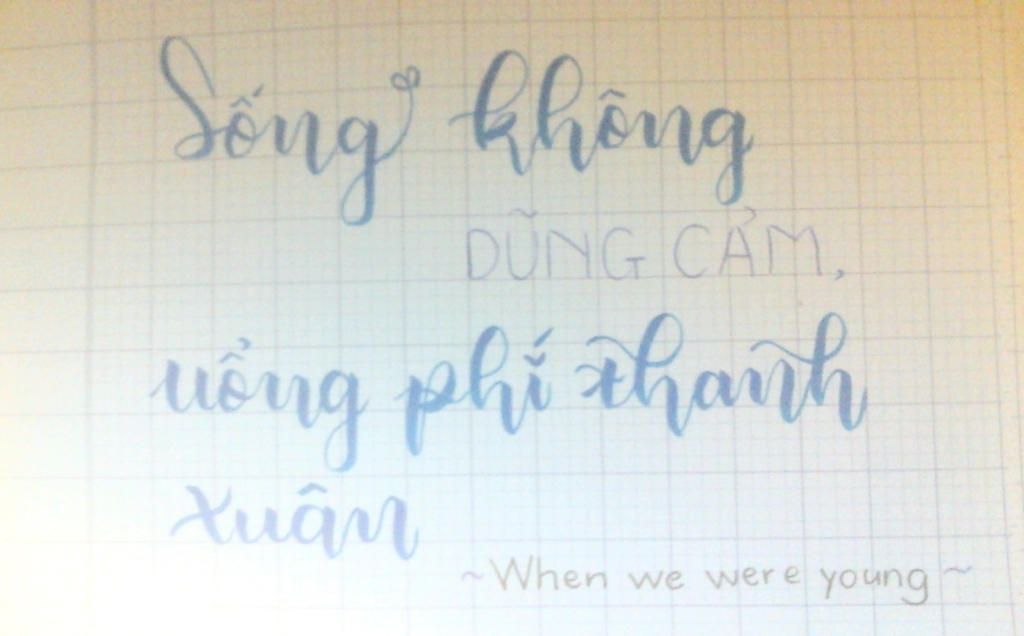 Sống không
DŨNG CẢM,
uổng phí thanh
xuân
~When we were young~